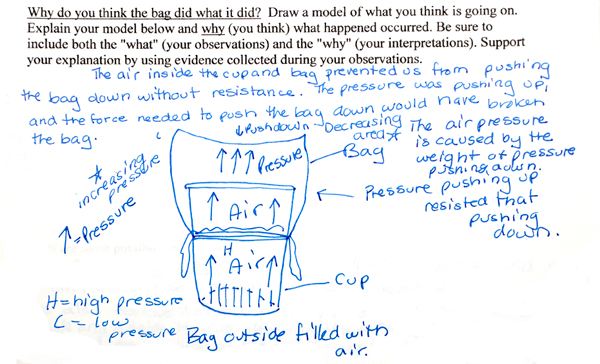 Why do you think the bag did what it did? Draw a model of what you think is going on.
Explain your model below and why (you think) what happened occurred. Be sure to
include both the "what" (your observations) and the "why" (your interpretations). Support
your explanation by using evidence collected during your observations.
The air inside the cup and bag prevented us from pushing
the bag down without resistance. The pressure was pushing up,
and the force needed to push the bag down would have broken
the bag.
↓Pushdown - Decreasing
area*
The air pressure
is caused by the
weight of pressure
pushing down.
Bag
↑↑↑ Pressure
* increasing
pressure
↑=Pressure
Pressure pushing up
resisted that
pushing
down.
↑ Air ↑
H
↑ Air ↑
Cup
H=high pressure
L = low
pressure
Bag outside filled with
air.